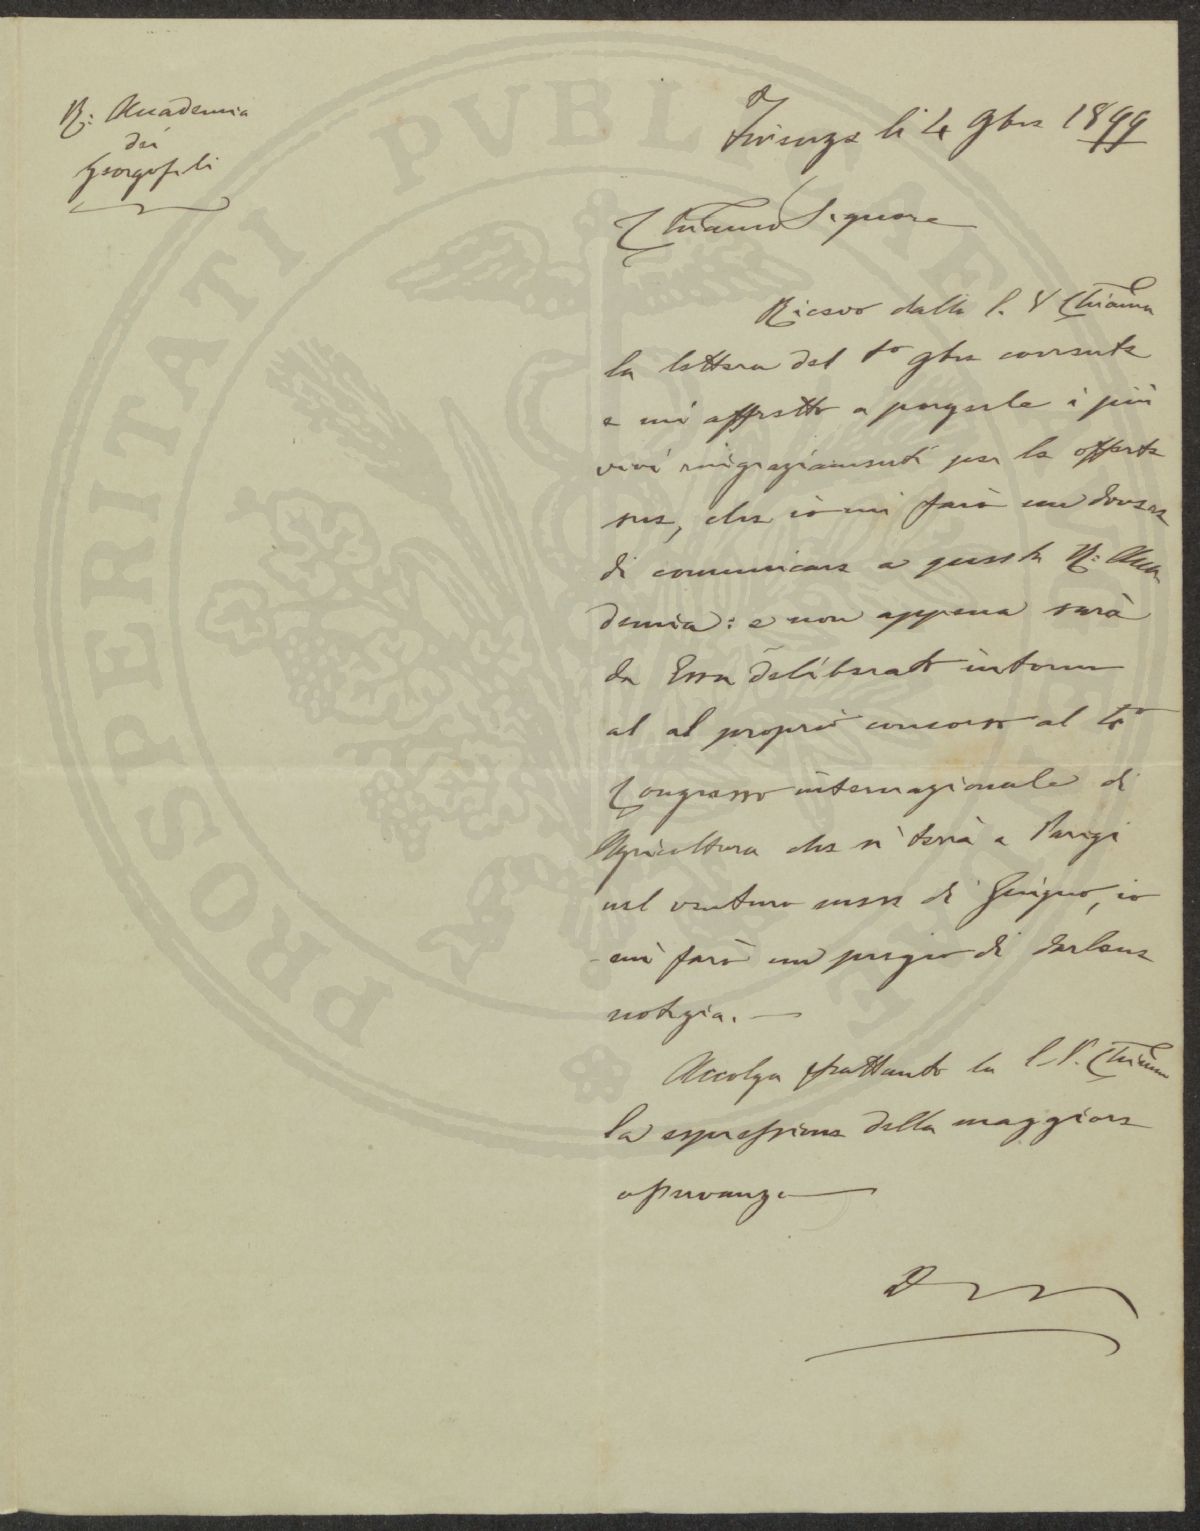 R: Accademia
dei
Georgofili
Firenze li 4 9bre 1899
Chiarmo Signore
Ricevo dalla S. V. Chiarma
la lettera del 1o 9bre corrente
e mi affretto a porgerle i più
vivi ringraziamenti per la offerta
sua, che io mi farò un dovere
di comunicare a questa R: Acca
demia: e non appena sarà
da Essa deliberato intorno
al al proprio concorso al 6o
Congresso internazionale di
Agricoltura che si terrà a Parigi
nel venturo mese di Giugno, io
mi farò un pregio di darlene
notizia. —
Accolga frattanto la S. V. Chiarma
la espressione della maggiore
osservanza
PROSPERITATI PVBLICAE